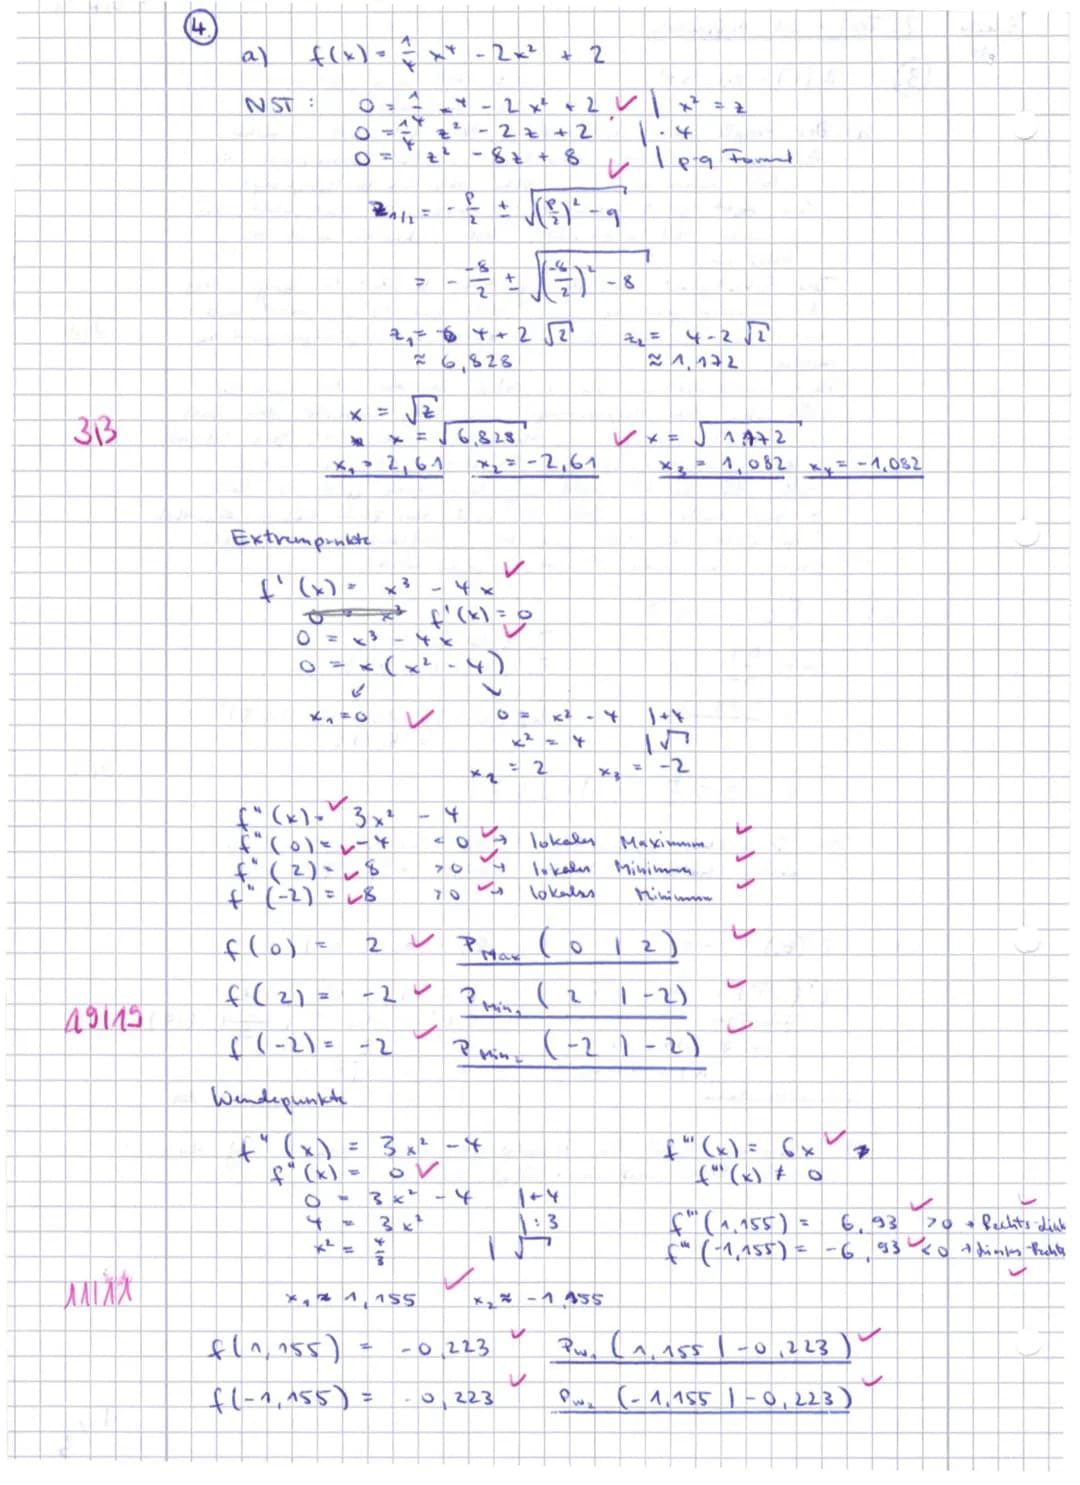 4
a) f(x) = 1/4 x⁴ - 2x² + 2
NST: 0 = 1/4 x⁴ - 2x² + 2 ✓ | x² = z
0 = 1/4 z² - 2z + 2 | · 4
0 = z² - 8z + 8 ✓ | p-q Formel
z₁/₂ = - p/2 ± √((p/2)² - q)
= - -8/2 ± √((-8/2)² - 8)
z₁ = 4 + 2√2 z₂ = 4 - 2√2
≈ 6,828 ≈ 1,172
x = √z
3|3 x = √6,828 ✓ x = √1,172
x₁ = 2,61 x₂ = -2,61 x₃ = 1,082 x₄ = -1,082
Extrempunkte
f'(x) = x³ - 4x ✓
f'(x) = 0
0 = x³ - 4x ✓
0 = x(x² - 4)
↙ ↘
x₁ = 0 ✓ 0 = x² - 4 |+4
x² = 4 |√
x₂ = 2 x₃ = -2
f''(x) = ✓ 3x² - 4
f''(0) = ✓ -4 < 0 ✓ → lokales Maximum ✓
f''(2) = ✓ 8 > 0 ✓ → lokales Minimum ✓
f''(-2) = ✓ 8 > 0 ✓ → lokales Minimum ✓
f(0) = 2 ✓ P_Max (0 | 2) ✓
f(2) = -2 ✓ P_Min₁ (2 | -2) ✓
19|19
f(-2) = -2 ✓ P_Min₂ (-2 | -2) ✓
Wendepunkte
f''(x) = 3x² - 4 f'''(x) = 6x ✓
f''(x) = 0 ✓ f'''(x) ≠ 0
0 = 3x² - 4 |+4
4 = 3x² |:3 f'''(1,155) = 6,93 ✓ > 0 → Rechts-link ✓
x² = 4/3 |√ f'''(-1,155) = -6,93 ✓ < 0 → links-Rechts ✓
11|11 x₁ ≈ 1,155 ✓ x₂ ≈ -1,155
f(1,155) = -0,223 ✓ P_W₁ (1,155 | -0,223) ✓
f(-1,155) = -0,223 ✓ P_W₂ (-1,155 | -0,223) ✓